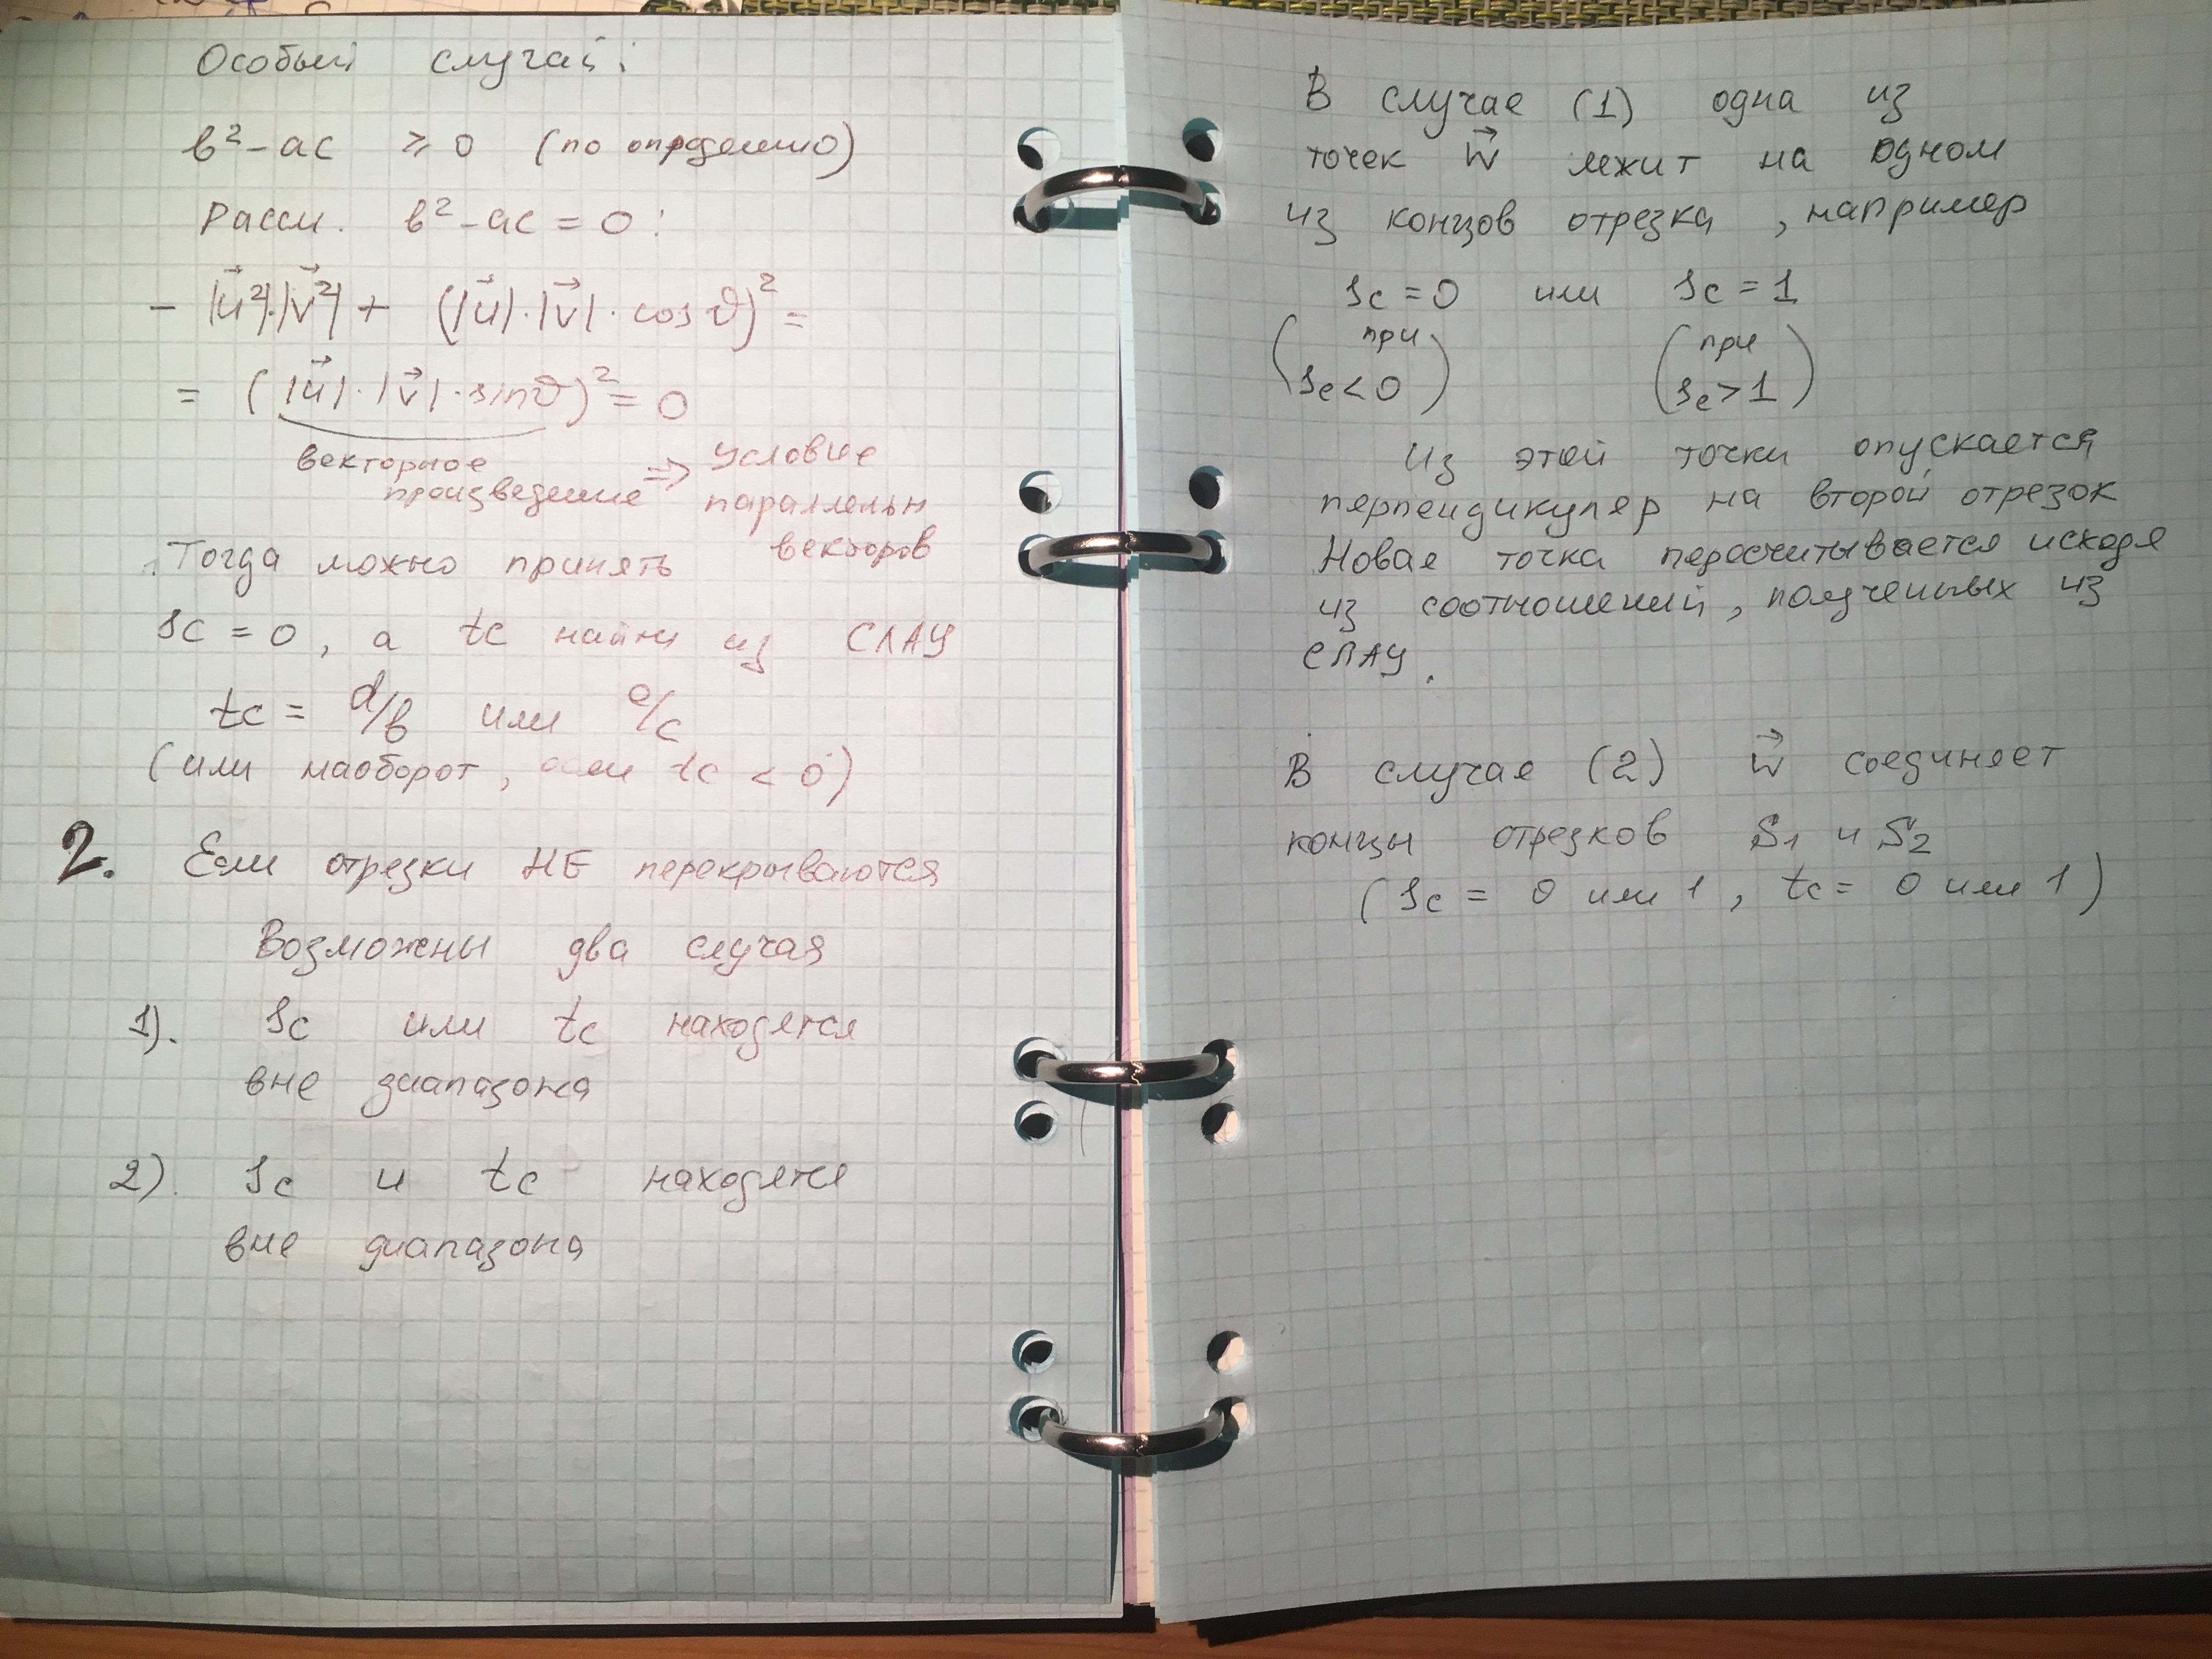 Особый случай:
b² - ac ⩾ 0 (по опрделению)
Рассм. b² - ac = 0 :
- |u⃗²|·|v⃗²| + (|u⃗|·|v⃗|·cos ϑ)² =
= (|u⃗|·|v⃗|·sin ϑ)² = 0
векторное
произведение ⇒ условие
параллельн
векторов
Тогда можно принять
sc = 0, а tc найти из СЛАУ
tc = d/b или e/c
(или наоборот, если tc < 0)
2. Если отрезки НЕ перекрываются
Возможны два случая
1). sc или tc находятся
вне диапазона
2). sc и tc находятся
вне диапазона
В случае (1) одна из
точек w⃗ лежит на одном
из концов отрезка, например
sc = 0 или sc = 1
(при sc < 0) (при sc > 1)
Из этой точки опускается
перпендикуляр на второй отрезок
Новая точка пересчитывается исходя
из соотношений, полученных из
СЛАУ.
В случае (2) w⃗ соединяет
концы отрезков S1 и S2
(sc = 0 или 1, tc = 0 или 1)